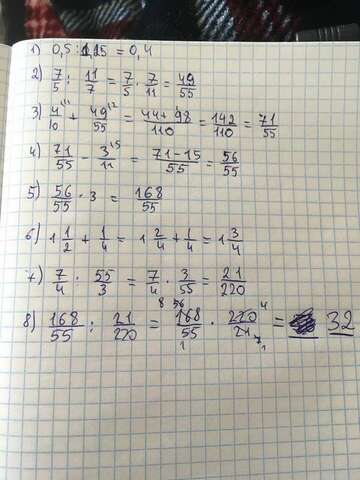 1) 0,5 : 1,25 = 0,4
2) 7/5 : 11/7 = 7/5 · 7/11 = 49/55
3) 4^11/10 + 49^12/55 = 44+98/110 = 142/110 = 71/55
4) 71/55 - 3^15/11 = 71-15/55 = 56/55
5) 56/55 · 3 = 168/55
6) 1 1/2 + 1/4 = 1 2/4 + 1/4 = 1 3/4
7) 7/4 : 55/3 = 7/4 · 3/55 = 21/220
8) 168/55 : 21/220 = 8 56 168/55 1 · 220 4/21 7 1 = 32